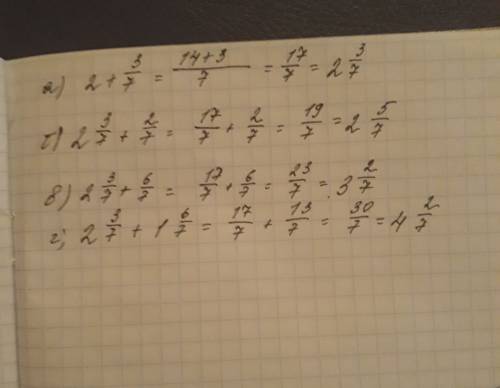 а) 2 + 3/7 = (14+3)/7 = 17/7 = 2 3/7
б) 2 3/7 + 2/7 = 17/7 + 2/7 = 19/7 = 2 5/7
в) 2 3/7 + 6/7 = 17/7 + 6/7 = 23/7 = 3 2/7
г) 2 3/7 + 1 6/7 = 17/7 + 13/7 = 30/7 = 4 2/7